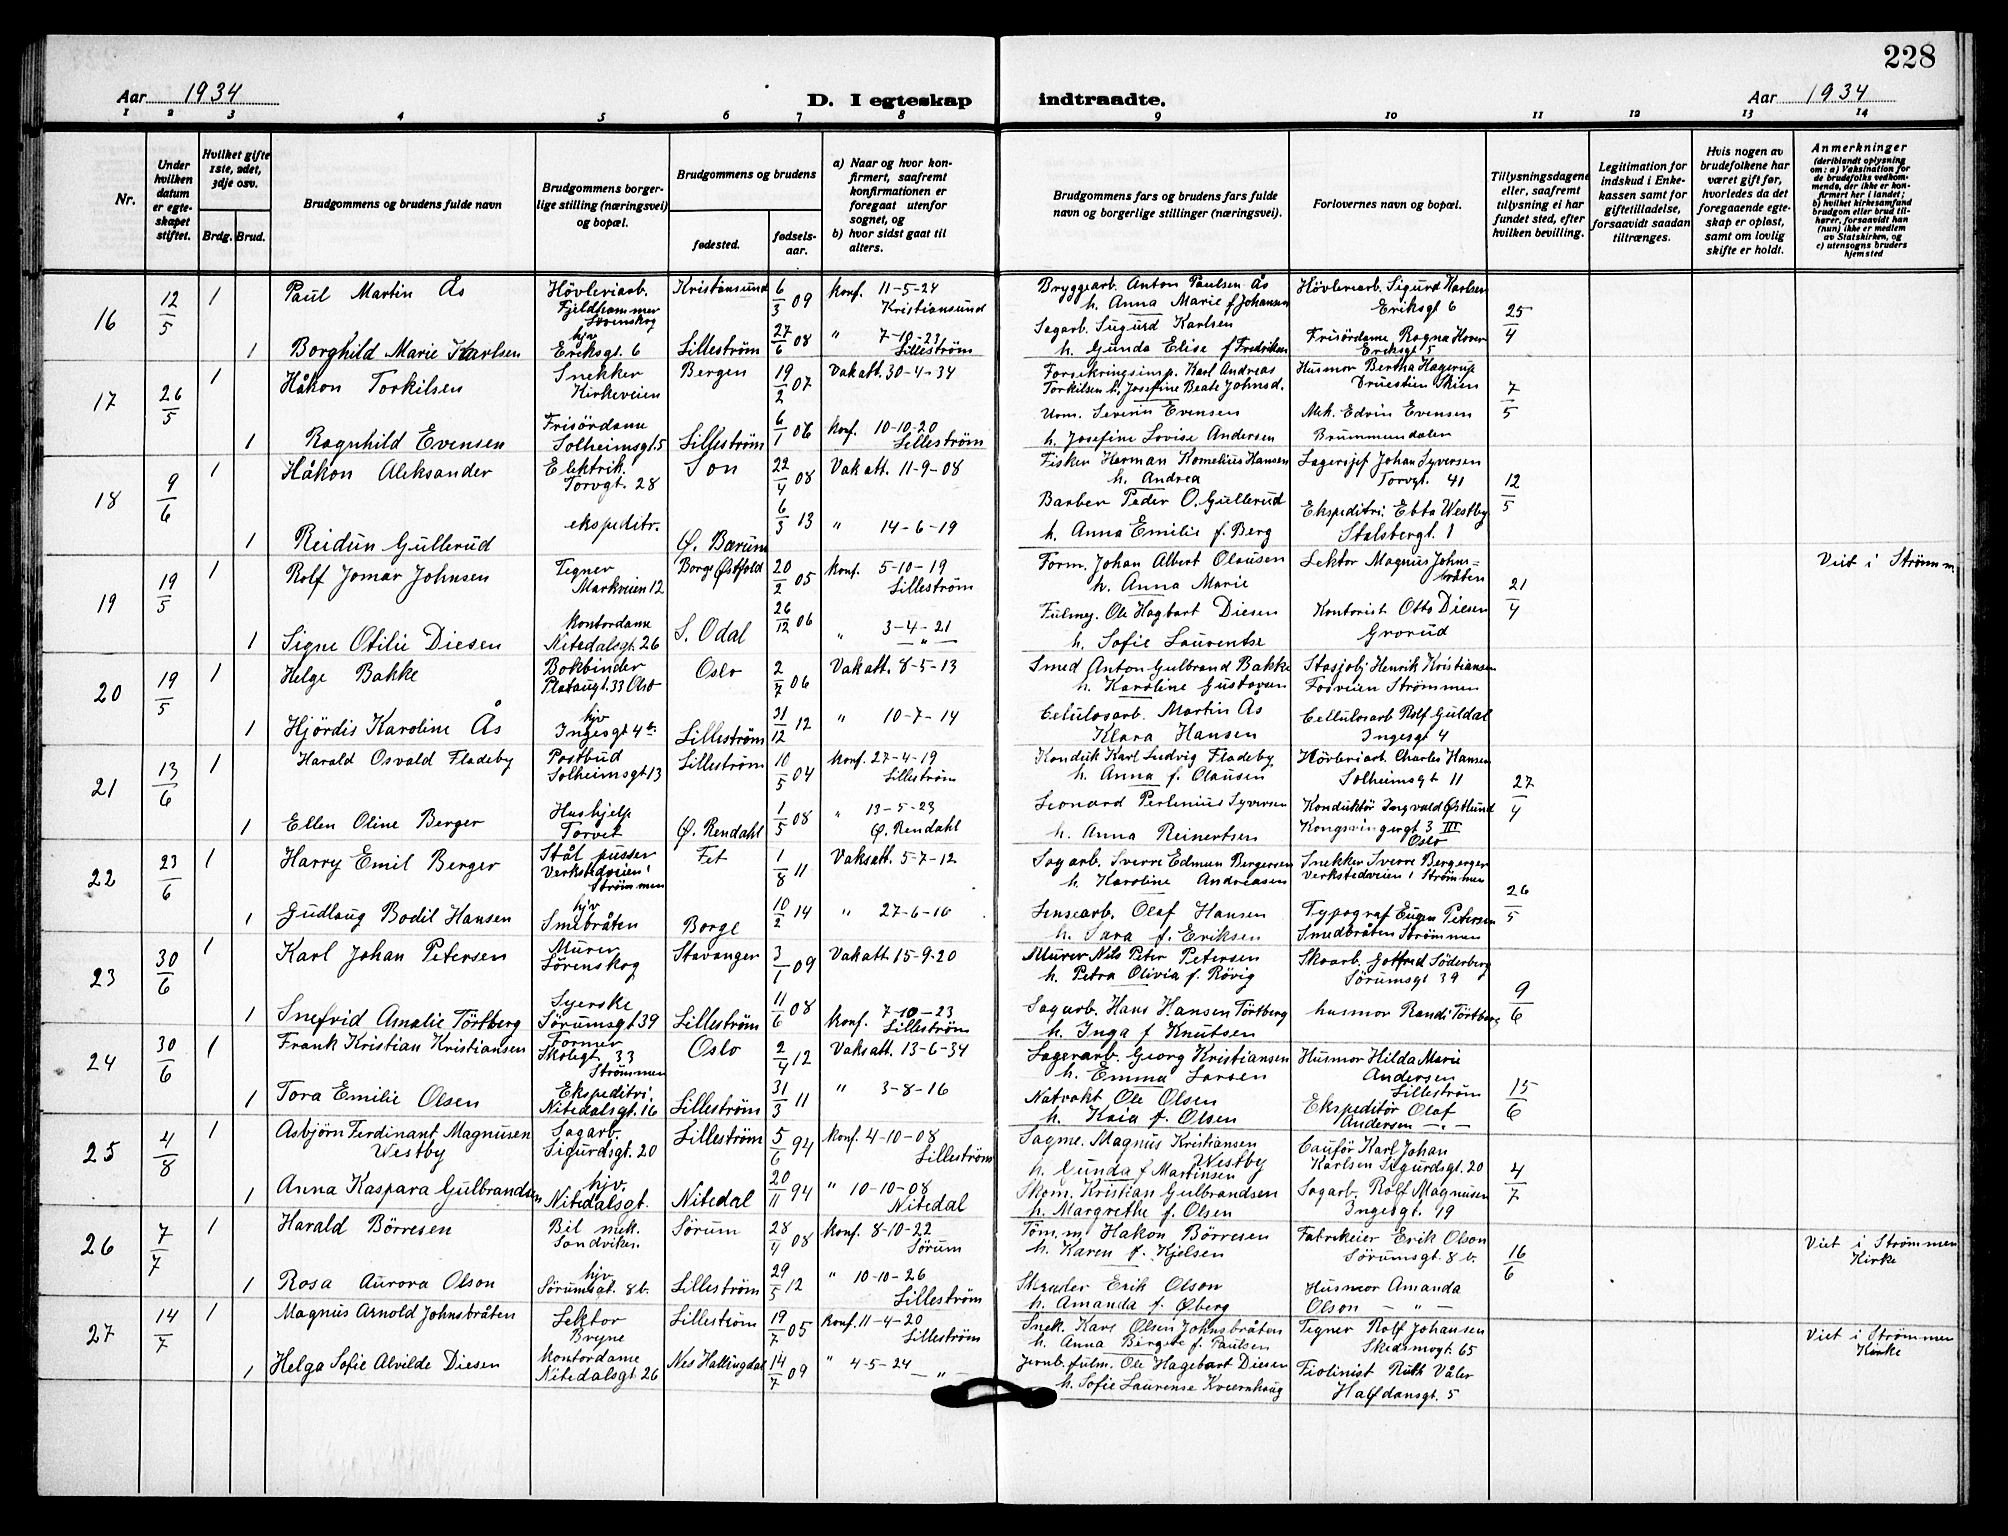 228
Aar 1934
D. I egteskap indtraadte.
Aar 1934
1 2 3 4 5 6 7 8 9 10 11 12 13 14
Nr.
Under hvilken datum er egteskapet stiftet.
Hvilket gifte 1ste, 2det, 3dje osv.
Brdg. Brud.
Brudgommens og brudens fulde navn
Brudgommens borgerlige stilling (næringsvei) og bopæl.
Brudgommens og brudens
fødested. fødselsaar.
a) Naar og hvor konfirmert, saafremt konfirmationen er foregaat utenfor sognet, og
b) hvor sidst gaat til alters.
Brudgommens fars og brudens fars fulde navn og borgerlige stillinger (næringsvei).
Forlovernes navn og bopæl.
Tillysningsdagene eller, saafremt tillysning ei har fundet sted, efter hvilken bevilling.
Legitimation for indskud i Enkekassen samt for giftetilladelse, forsaavidt saadan tiltrænges.
Hvis nogen av brudefolkene har været gift før, hvorledes da det foregaaende egteskap er opløst, samt om lovlig skifte er holdt.
Anmerkninger
(deriblandt oplysning om: a) Vaksination for de brudefolks vedkommende, der ikke er konfirmert her i landet; b) hvilket kirkesamfund brudgom eller brud tilhører, forsaavidt han (hun) ikke er medlem av Statskirken, og c) utensogns bruders hjemsted
16 12/5 1 Paul Martin Ås Hövleriarb. Fjeldhammer Lørenskog Kristiansund 6/3 09 konf. 11-5-24 Kristiansund Bryggearb. Anton Paulsen Ås h. Anna Marie f Johansen Hövleriarb. Sigurd Karlsen Eriksgt 6 25/4
1 Borghild Marie Karlsen hjv Eriksgt. 6 Lilleström 27/6 08 " 7-10-23 Lilleström Sagarb. Sigurd Karlsen h. Gunda Elise f Fredriksen Frisördame Ragna Hover Eriksgt 5
17 26/5 1 Håkon Torkilsen Snekker Kirkeveien Bergen 19/2 07 Vakatt. 30-4-34 Forsikringsinsp. Karl Andreas Torkilsen h. Josefine Beate Johnsd. Husmor Bertha Hagerup Skien 7/5
1 Ragnhild Evensen Frisördame Solheimsgt. 5 Lilleström 6/1 06 konf. 10-10-20 Lilleström Severin Evensen h. Josefine Lovise Andersen Mek. Edvin Evensen Brummundalen
18 9/6 1 Håkon Aleksander Elektrik. Torvgt. 28 Son 22/4 08 Vakatt. 11-9-08 Fisker Herman Kornelius Hansen h. Andrea Lagersjef Johan Syversen Torvgt. 41 12/5
1 Reidun Gullerud ekspeditr. Ø. Bærum 6/3 13 " 14-6-19 Barber Peder O. Gullerud h. Anna Emilie f. Berg Ekspeditri. Ebba Westby Stalsbergt. 1
19 19/5 1 Rolf Jomar Johnsen Tegner Markveien 12 Borge Østfold 20/2 05 konf. 5-10-19 Lilleström Form. Johan Albert Olausen h. Anna Marie Lektor Magnus Johnsbråten 21/4 Viet i Strømm.
1 Signe Otilie Diesen Kontordame Nitedalsgt. 26 S. Odal 26/12 06 " 3-4-21 — " — Fulmeg. Ole Hagbart Diesen h. Sofie Laurentse Kontorist Otto Diesen Grorud
20 19/5 1 Helge Bakke Bokbinder Plataugt. 33 Olso Oslo 2/7 06 Vakatt. 8-5-13 Smed Anton Gulbrand Bakke h. Karoline Gustavsen Stasjobj Henrik Kristiansen Fosveien Strömmen
1 Hjördis Karoline Ås hjv Ingesgt 4b: Lilleström 31/12 12 " 10-7-14 Celulosarb. Martin Ås Klara Hansen Cellulosarb Rolf Guldal Ingesgt 4
21 13/6 1 Harald Osvald Fladeby Postbud Solheimsgt 13 Lilleström 10/5 04 Konf. 27-4-19 Lilleström Konduk Karl Ludvig Fladeby h. Anna f. Olausen Hövleriarb. Charles Hansen Solheimsgt 11 27/4
1 Ellen Oline Berger Hushjelp Torvet Ø. Rendahl 1/5 08 " 13-5-23 Ø. Rendahl Leonard Perlenius Syversen h. Anna Reinertsen Konduktör Ingvald Østlund Kongsvingergt 3 III Oslo
22 23/6 1 Harry Emil Berger Stål pusser Verkstedveien 1 Strömmen Fet 1/8 11 Vaksatt. 5-7-12 Sagarb. Sverre Edmun Bergersen h. Karoline Andreasen Snekker Sverre Bergerger Verkstedveien 1 Strömmen 26/5
1 Gudlaug Bodil Hansen hjv Smebråten Borge 10/2 14 " 27-6-16 Lensearb. Olaf Hansen h. Sara f. Eriksen Typograf Eugen Petersen Smedbråten Strömmen
23 30/6 1 Karl Johan Petersen Murer Lörenskog Stavanger 3/1 09 Vakatt. 15-9-20 Murer Nils Peter Petersen h. Petra Olivia f. Rövig Skoarb. Gotfred Söderberg Sörumsgt 39 9/6
1 Snefrid Amalie Törtberg Syerske Sörumsgt 39 Lilleström 11/6 08 konf. 7-10-23 Lilleström Sagarb. Hans Hansen Törtberg h. Inga f Knutsen husmor Randi Törtberg
24 30/6 1 Frank Kristian Kristiansen Former Skolegt. 33 Strömmen Oslo 2/4 12 Vaksatt. 13-6-34 Lagerarb. Georg Kristiansen h. Emma Larsen Husmor Hilda Marie Andersen Lilleström 15/6
1 Tora Emilie Olsen Ekspeditri. Nitedalsgt. 16 Lilleström 31/3 11 " 3-8-16 Natvakt Ole Olsen h. Kaia f. Olsen Ekspeditör Olaf Andersen — " —
25 4/8 1 Asbjörn Ferdinant Magnusen Westby Sagarb. Sigurdsgt. 20 Lilleström 5/6 94 konf. 4-10-08 Lilleström Sagme. Magnus Kristiansen Westby h. Gunda f Martinsen Cauför Karl Johan Karlsen Sigurdsgt. 20 4/7
1 Anna Kaspara Gulbrandsen hjv. Nitedalsgt. Nitedal 20/11 94 " 10-10-08 Nitedal Skom. Kristian Gulbrandsen h. Margrethe f. Olsen Sagarb. Rolf Magnusen Ingesgt. 19
26 7/7 1 Harald Börresen Bil mek. Sandviken Sörum 28/4 08 konf. 8-10-22 Sörum Töm.m Hakon Börresen h. Karen f. Kjelsen Fabrikeier Erik Olson Sörumsgt. 8 b. 16/6 Viet i Strømmen Kirke
1 Rosa Aurora Olson hjv. Sörumsgt. 8b. Lilleström 29/5 12 " 10-10-26 Lilleström Skrædder Erik Olson h. Amanda f. Øberg Husmor Amanda Olson — " —
27 14/7 1 Magnus Arnold Johnsbråten Lektor Bryne Lilleström 19/7 05 konf. 11-4-20 Lilleström Snek. Karl Olsen Johnsbråten h. Anna Birgite f. Paulsen Tegner Rolf Johansen Skedsmogt. 65 Viet i Strømmen Kirke
1 Helga Sofie Alvilde Diesen Kontordame Nitedalsgt. 26 Nes Hallingdal 14/7 09 " 4-5-24 — " — Jernb. fulm. Ole Hagebart Diesen h. Sofie Laurense Kveernhaug Fiolinist Ruth Våler Halfdansgt. 5